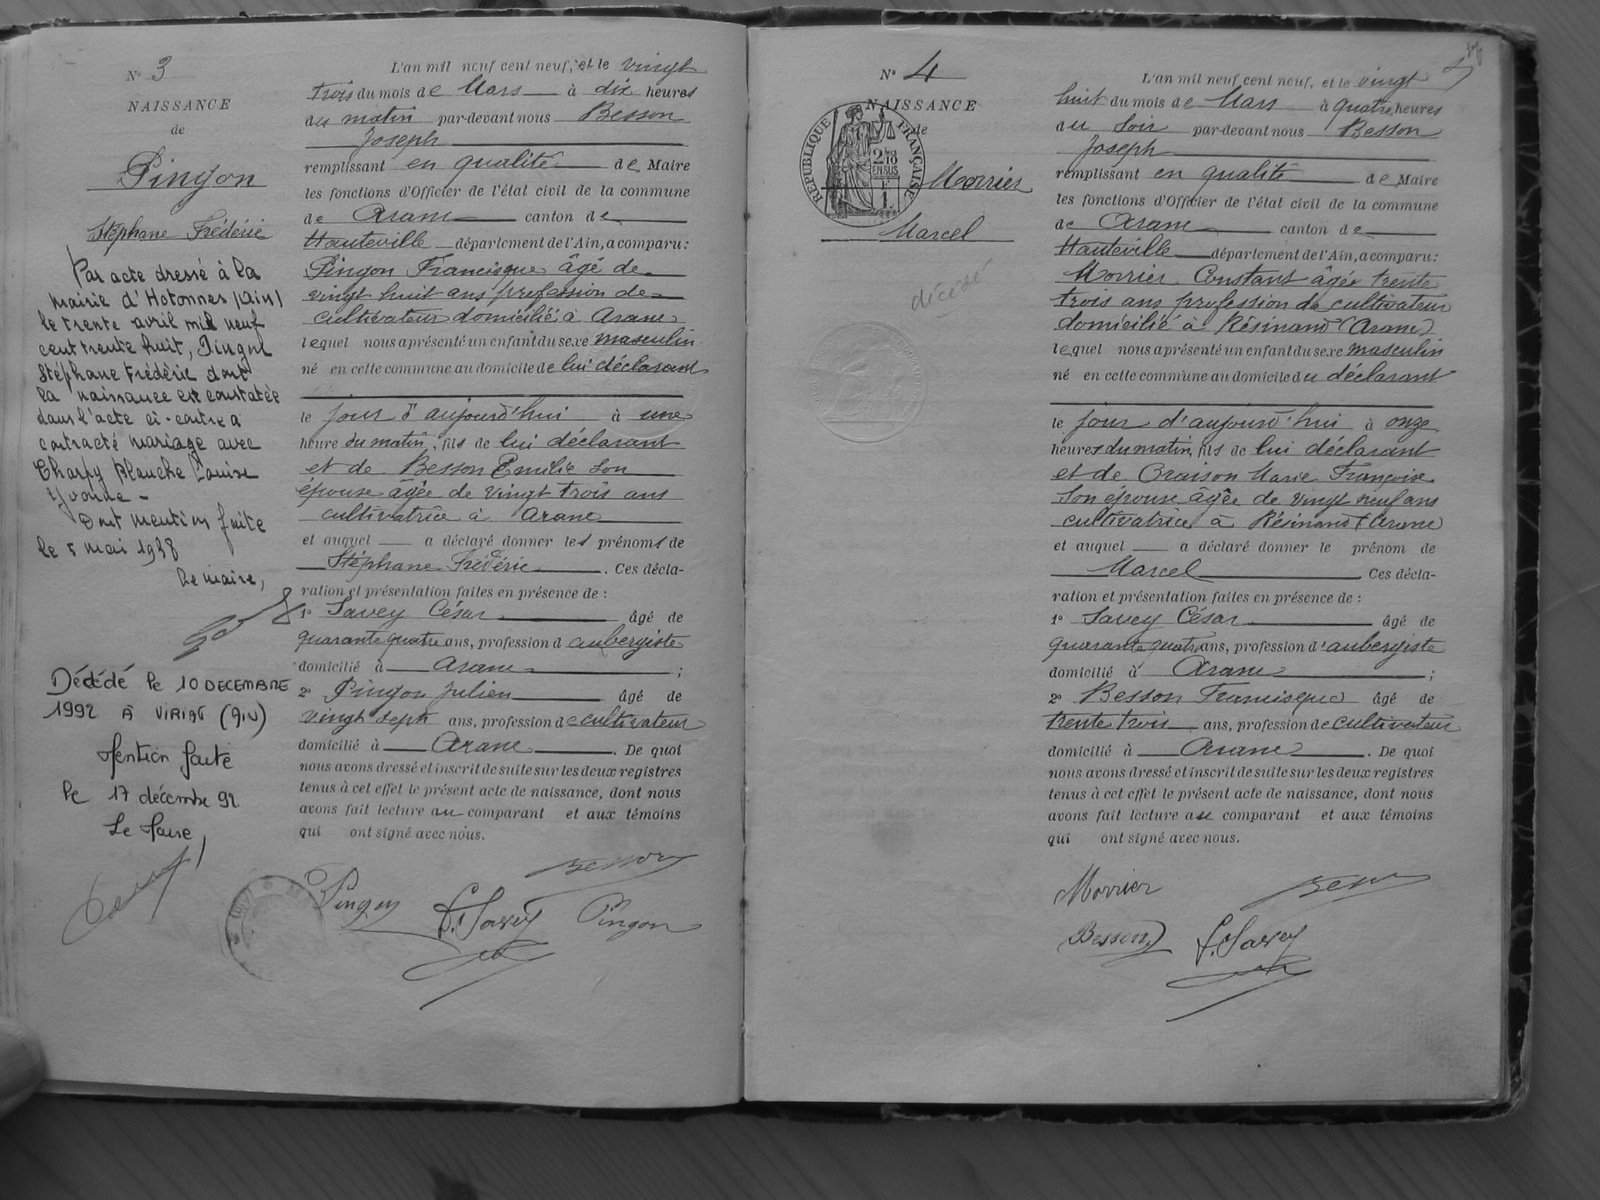 N° 3
NAISSANCE
de
Pingon
Stéphane Frédéric
Par acte dressé à la
mairie d'Hotonnes (Ain)
le trente avril mil neuf
cent trente huit, Pingon
Stéphane Frédéric dont
la naissance est constatée
dans l'acte ci-contre a
contracté mariage avec
Charpy Blanche Louise
Yvonne -
Dont mention faite
le 5 mai 1938
Le maire,
Décédé le 10 DECEMBRE
1992 À VIRIAT (AIN)
Mention faite
le 17 décembre 92
Le Maire,
L'an mil neuf cent neuf, et le vingt
trois du mois de Mars à dix heures
du matin par-devant nous Besson
Joseph
remplissant en qualité de Maire
les fonctions d'Officier de l'état civil de la commune
de Aranc canton de
Hauteville département de l'Ain, a comparu:
Pingon Francisque âgé de
vingt huit ans profession de
cultivateur domicilié à Aranc
lequel nous a présenté un enfant du sexe masculin
né en cette commune au domicile de lui déclarant
le jour d'aujourd'hui à une
heure du matin, fils de lui déclarant
et de Besson Emilie son
épouse âgée de vingt trois ans
cultivatrice à Aranc
et auquel a déclaré donner les prénoms de
Stéphane Frédéric. Ces décla-
ration et présentation faites en présence de :
1° Savey César âgé de
quarante quatre ans, profession d'aubergiste
domicilié à Aranc ;
2° Pingon Julien âgé de
vingt sept ans, profession de cultivateur
domicilié à Aranc. De quoi
nous avons dressé et inscrit de suite sur les deux registres
tenus à cet effet le présent acte de naissance, dont nous
avons fait lecture au comparant et aux témoins
qui ont signé avec nous.
Besson
Pingon C. Savey Pingon
N° 4
NAISSANCE
de
RÉPUBLIQUE FRANÇAISE
EN SUS
Morrier
Marcel
décédé
L'an mil neuf cent neuf, et le vingt
huit du mois de Mars à quatre heures
du soir par-devant nous Besson
Joseph
remplissant en qualité de Maire
les fonctions d'Officier de l'état civil de la commune
de Aranc canton de
Hauteville département de l'Ain, a comparu:
Morrier Constant âgé trente
trois ans profession de cultivateur
domicilié à Résinand (Aranc)
lequel nous a présenté un enfant du sexe masculin
né en cette commune au domicile du déclarant
le jour d'aujourd'hui à onze
heures du matin, fils de lui déclarant
et de Craison Marie Françoise
son épouse âgée de vingt neuf ans
cultivatrice à Résinand (Aranc)
et auquel a déclaré donner le prénom de
Marcel Ces décla-
ration et présentation faites en présence de :
1° Savey César âgé de
quarante quatre ans, profession d'aubergiste
domicilié à Aranc ;
2° Besson Francisque âgé de
trente trois ans, profession de cultivateur
domicilié à Aranc. De quoi
nous avons dressé et inscrit de suite sur les deux registres
tenus à cet effet le présent acte de naissance, dont nous
avons fait lecture au comparant et aux témoins
qui ont signé avec nous.
Morrier Besson
Besson C. Savey